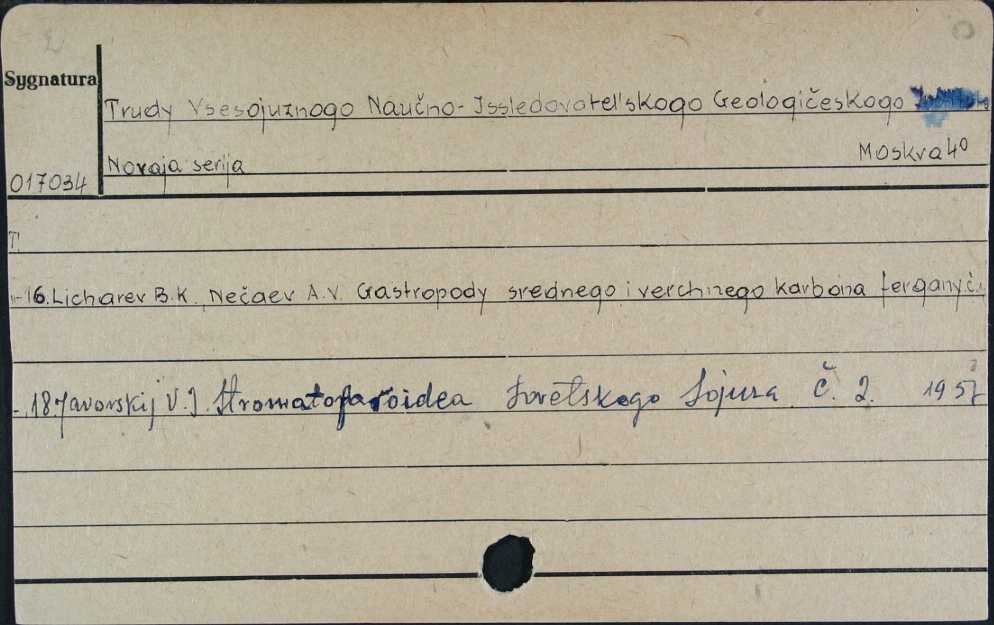 Sygnatura
Trudy Vsesojuznogo Naučno-Issledovatel'skogo Geologičeskogo
Novaja serija Moskva 4°
017034
T.
-16. Licharev B.K. Nečaev A.V. Gastropody srednego i verchnego karbona ferganyč.
-18 Javorskij V.I. Stromatoparoidea Sovetskogo Sojuza č. 2. 1957